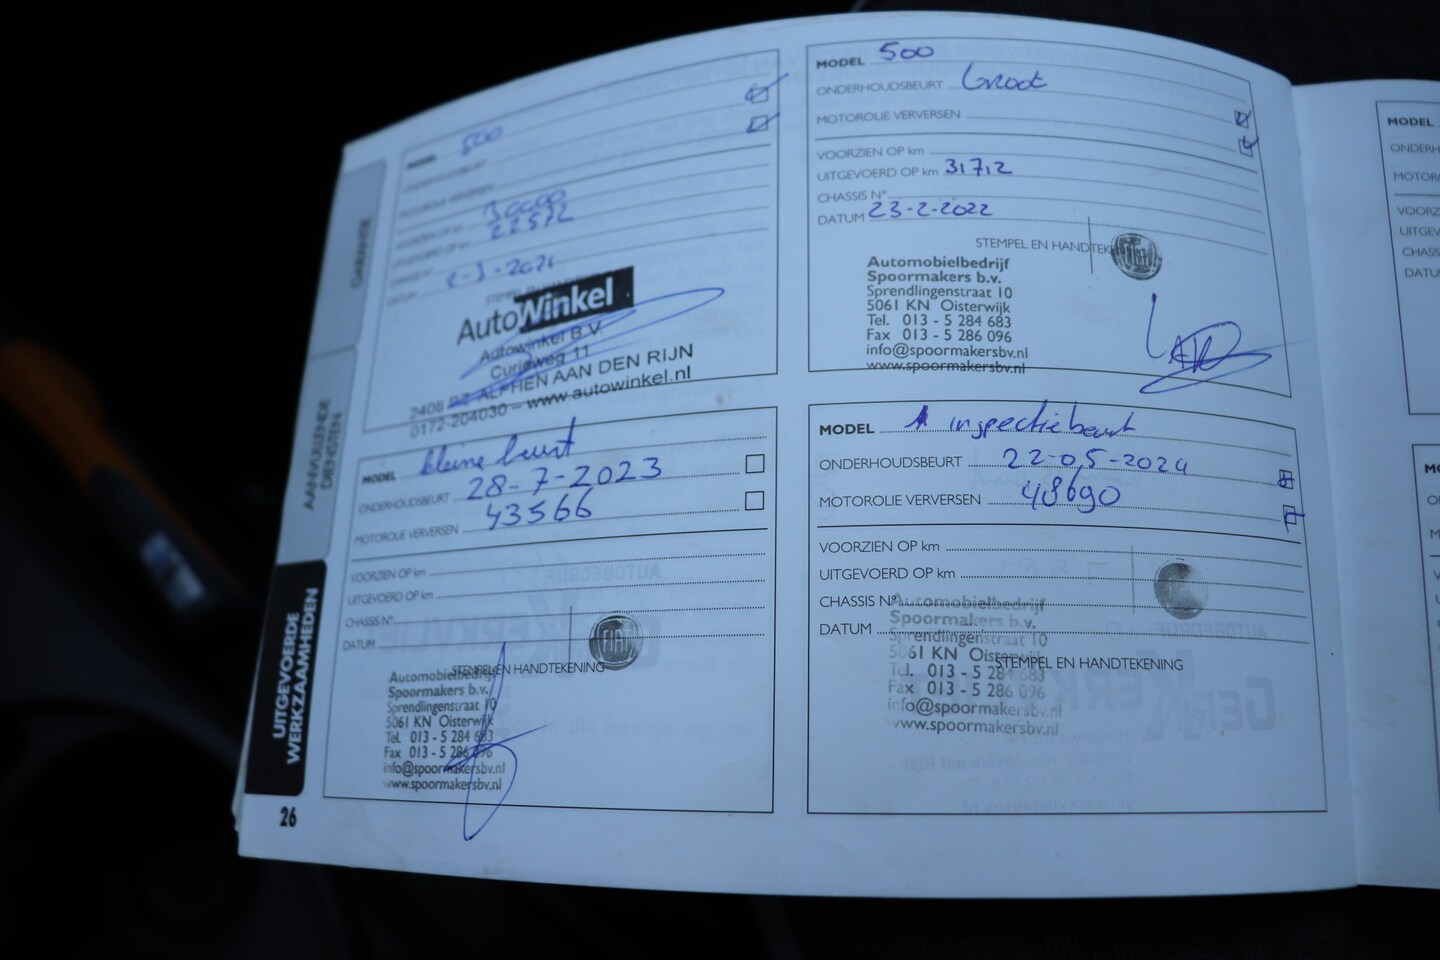 GARANTIE
AANVULLENDE
DIENSTEN
UITGEVOERDE
WERKZAAMHEDEN
26
MODEL 500
ONDERHOUDSBEURT
MOTOROLIE VERVERSEN
VOORZIEN OP km 30000
UITGEVOERD OP km 22572
CHASSIS N°
DATUM 2-3-2021
AutoWinkel
Autowinkel B.V.
Curieweg 11
2408 BZ ALPHEN AAN DEN RIJN
0172-204030 – www.autowinkel.nl
MODEL 500
ONDERHOUDSBEURT Groot
MOTOROLIE VERVERSEN
VOORZIEN OP km
UITGEVOERD OP km 31712
CHASSIS N°
DATUM 23-2-2022
STEMPEL EN HANDTEKENING
FIAT
Automobielbedrijf
Spoormakers b.v.
Sprendlingenstraat 10
5061 KN Oisterwijk
Tel. 013 - 5 284 683
Fax 013 - 5 286 096
info@spoormakersbv.nl
www.spoormakersbv.nl
MODEL kleine beurt
ONDERHOUDSBEURT 28-7-2023
MOTOROLIE VERVERSEN 43566
VOORZIEN OP km
UITGEVOERD OP km
CHASSIS N°
DATUM
STEMPEL EN HANDTEKENING
FIAT
Automobielbedrijf
Spoormakers b.v.
Sprendlingenstraat 10
5061 KN Oisterwijk
Tel. 013 - 5 284 683
Fax 013 - 5 286 096
info@spoormakersbv.nl
www.spoormakersbv.nl
MODEL inspectiebeurt
ONDERHOUDSBEURT 22-05-2024
MOTOROLIE VERVERSEN 48690
VOORZIEN OP km
UITGEVOERD OP km
CHASSIS N°
DATUM
STEMPEL EN HANDTEKENING
Automobielbedrijf
Spoormakers b.v.
Sprendlingenstraat 10
5061 KN Oisterwijk
Tel. 013 - 5 284 683
Fax 013 - 5 286 096
info@spoormakersbv.nl
www.spoormakersbv.nl
MODEL
ONDERH
MOTORO
VOORZ
UITGEV
CHASS
DATU